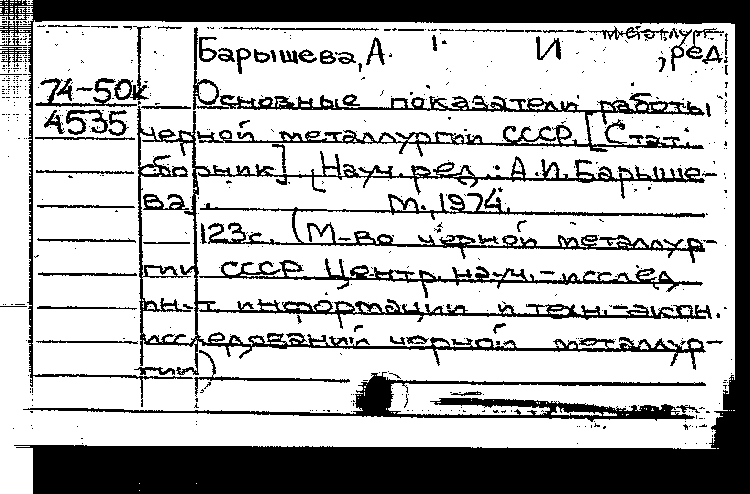 металлург
Барышева, А. И , ред
74-50к Основные показатели работы
4535 черной металлургии СССР. [Стат.
сборник]. [Науч. ред.: А.И. Барыше-
ва]. М., 1974.
123с. (М-во черной металлур-
гии СССР Центр. науч.-исслед
ин-т информации и техн.-экон.
исследований черной металлур-
гии)